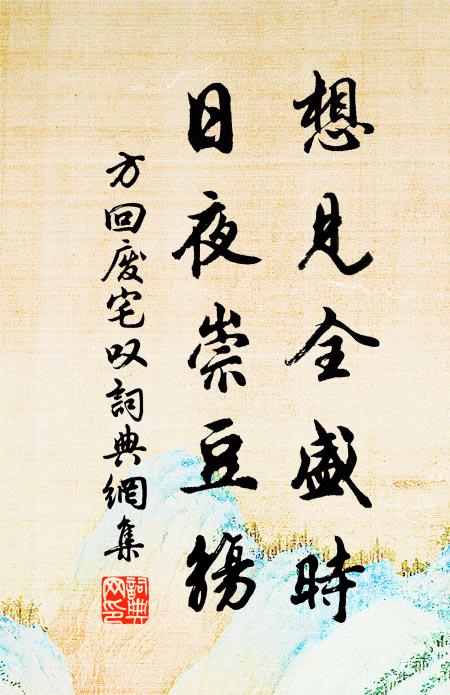 想見全盛時
日夜崇豆觴
方回废宅叹詞典網集
詞典网印